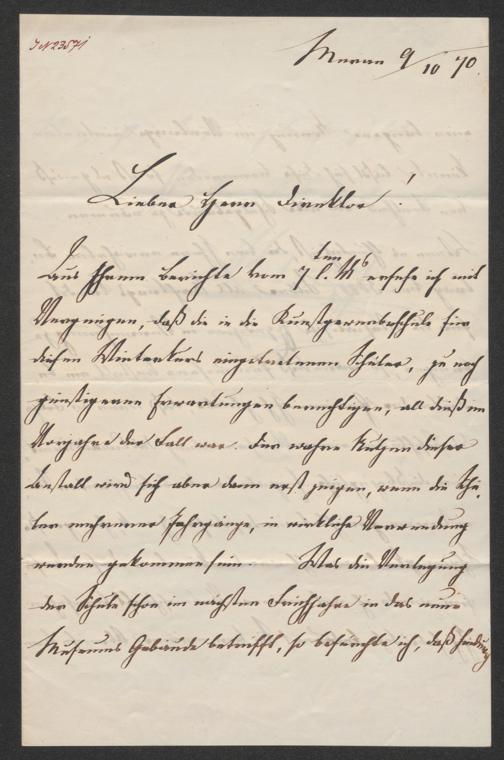 IN 23571
Meran 9/10 70.
Lieber Herr Direktor!
Aus Ihrem Berichte vom 7ten l. Ms ersehe ich mit
Vergnügen, daß die in die Kunstgewerbeschule für
diesen Winterkurs eingetretenen Schüler, zu noch
günstigeren Erwartungen berechtigen, als dieß im
Vorjahre der Fall war. Der wahre Nutzen dieser
Anstalt wird sich aber dann erst zeigen, wenn die Schü-
ler mehrerer Jahrgänge, in wirkliche Verwendung
werden gekommen sein. Was die Verlegung
der Schule schon im nächsten Frühjahre in das neue
Museums Gebäude betrifft, so befürchte ich, daß